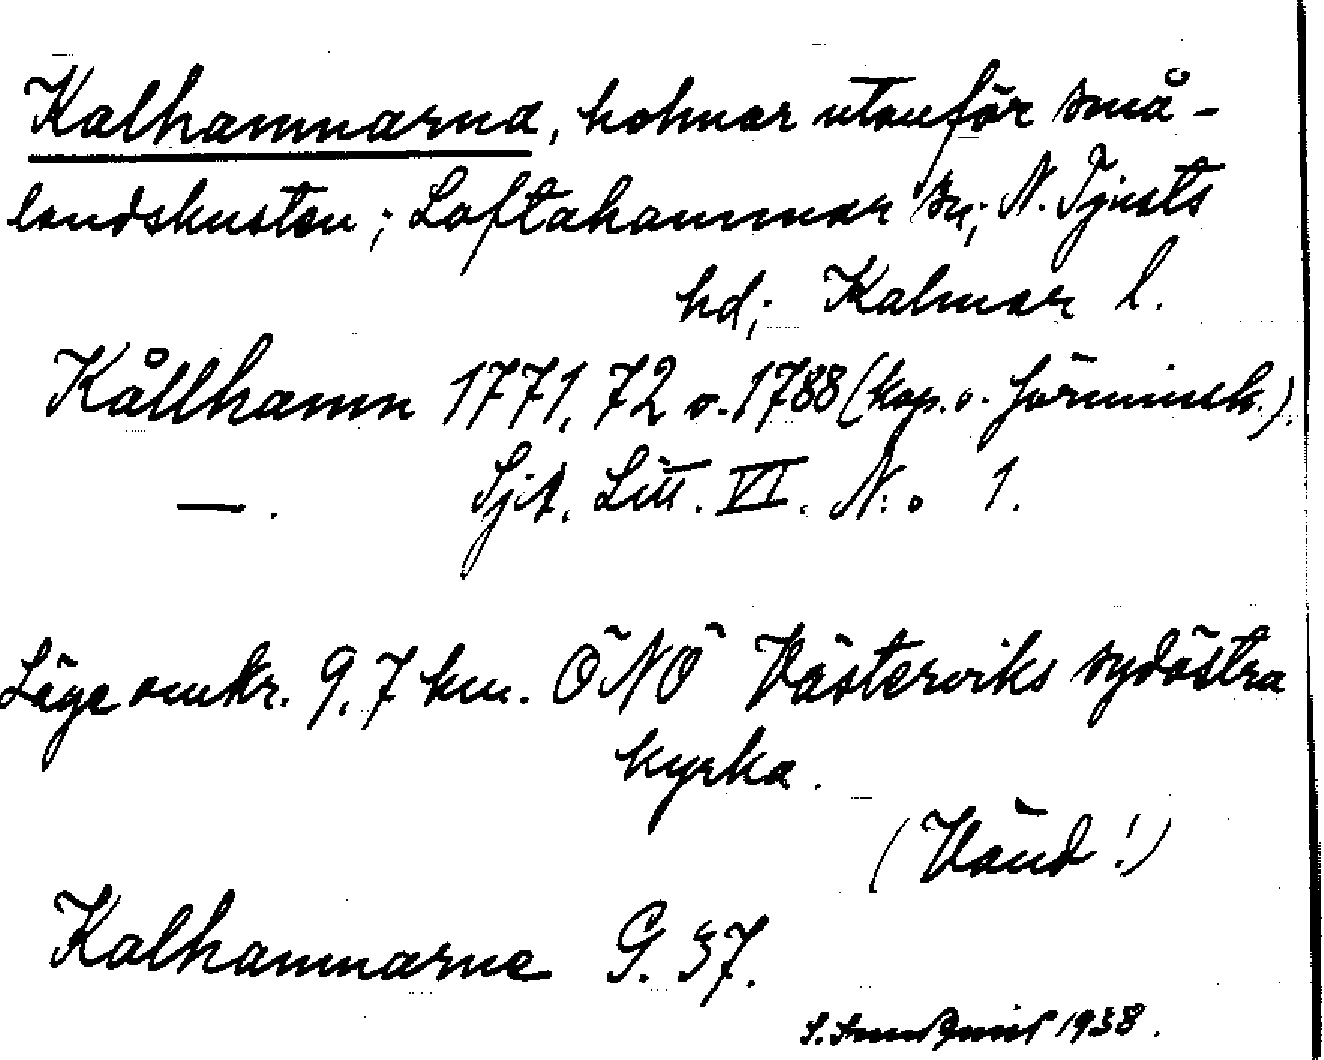 Kalhamnarna, holmar utanför små-
landskusten; Loftahammar sn; N. Tjusts
hd; Kalmar l.
Kållhamn 1771, 72 o. 1788 (kop. o. förminsk.).
—. Sjk. Litt. VI. N:o 1.
Läge omkr. 9,7 km. ÖNÖ Västerviks sydöstra
kyrka.
(Vänd!)
Kalhamnarne G. 37.
1938.